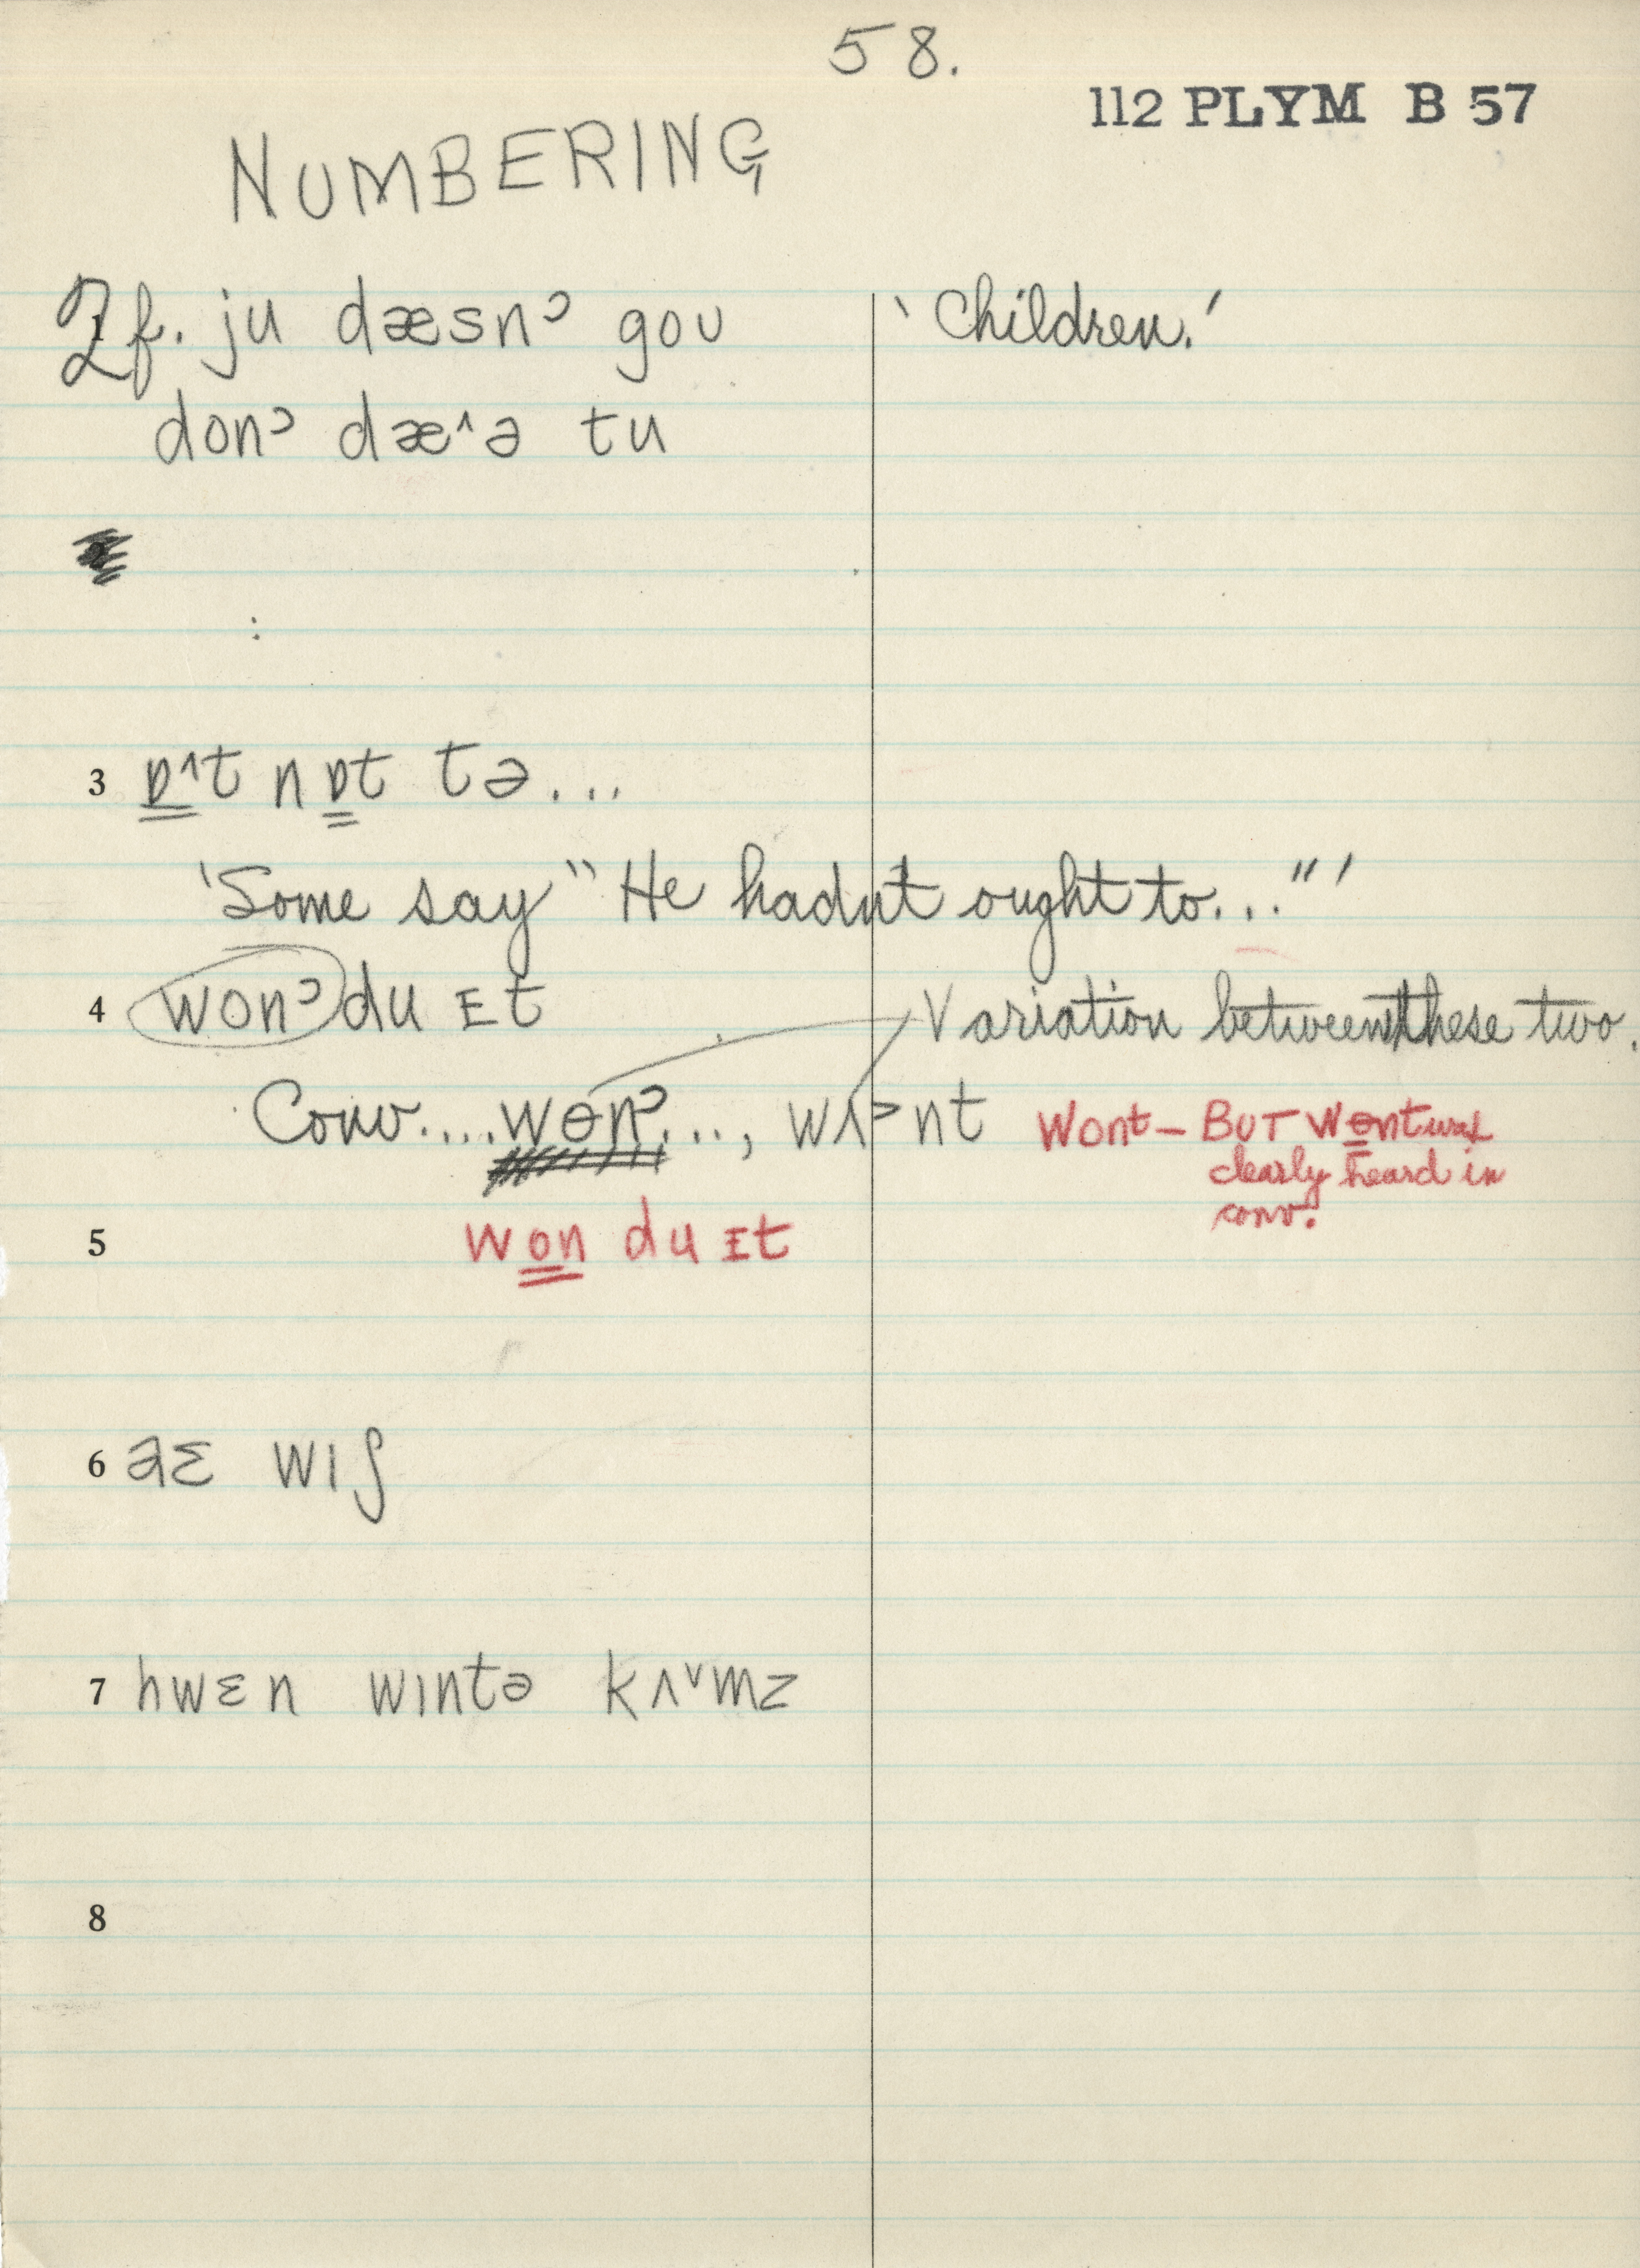 58.
112 PLYM B 57
NUMBERING
2f. ju dæsnˀ goʊ 'Children.'
donˀ dæ^ə tu
3 ɒ^t nɒt tə...
'Some say "He hadn't ought to..."'
4 wonˀ du ɪt Variation between these two.
Conv....wɵnˀ..., wʌ>nt Wont – BUT Wɵnt was
clearly heard in
conv.
5 won du ɪt
6 aɛ wɪʃ
7 hwɛn wɪntə kʌ˅mz
8